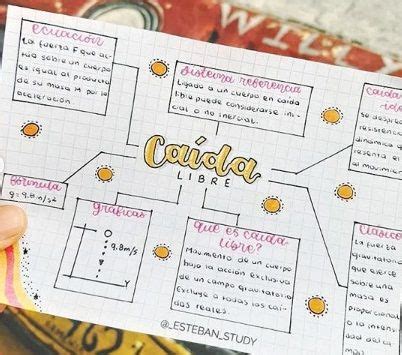 WILLY
ecuación
La fuerza F que ac-
túa sobre un cuerpo
es igual al producto
de su masa M por la
aceleración.
sistema referencia
Ligado a un cuerpo en caída
libre puede considerarse iner-
cial o no inercial.
Caída
Se despre
resistencia
dinámica q
resenta el
al movimien
Caída
LIBRE
fórmula
g=9.8m/s²
gráficas
9.8m/s
Y
que es caída
libre?
Movimiento de un cuerpo
bajo la acción exclusiva
de un campo gravitatorio
Excluye a todas las caí-
das reales.
Clásico
La fuerza
gravitatori
que ejerce
sobre una
masa es
proporciona
a la intensi
dad del ca
@_ESTEBAN_STUDY